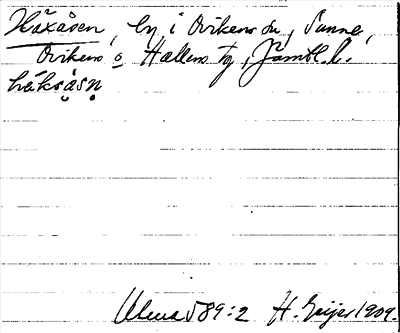 Häxåsen, by i Ovikens sn, Sunne,
Ovikens o Hallens tg, Jämtl. l.
häksåsn̥
Ulma 589:2 H. Geijer 1909.